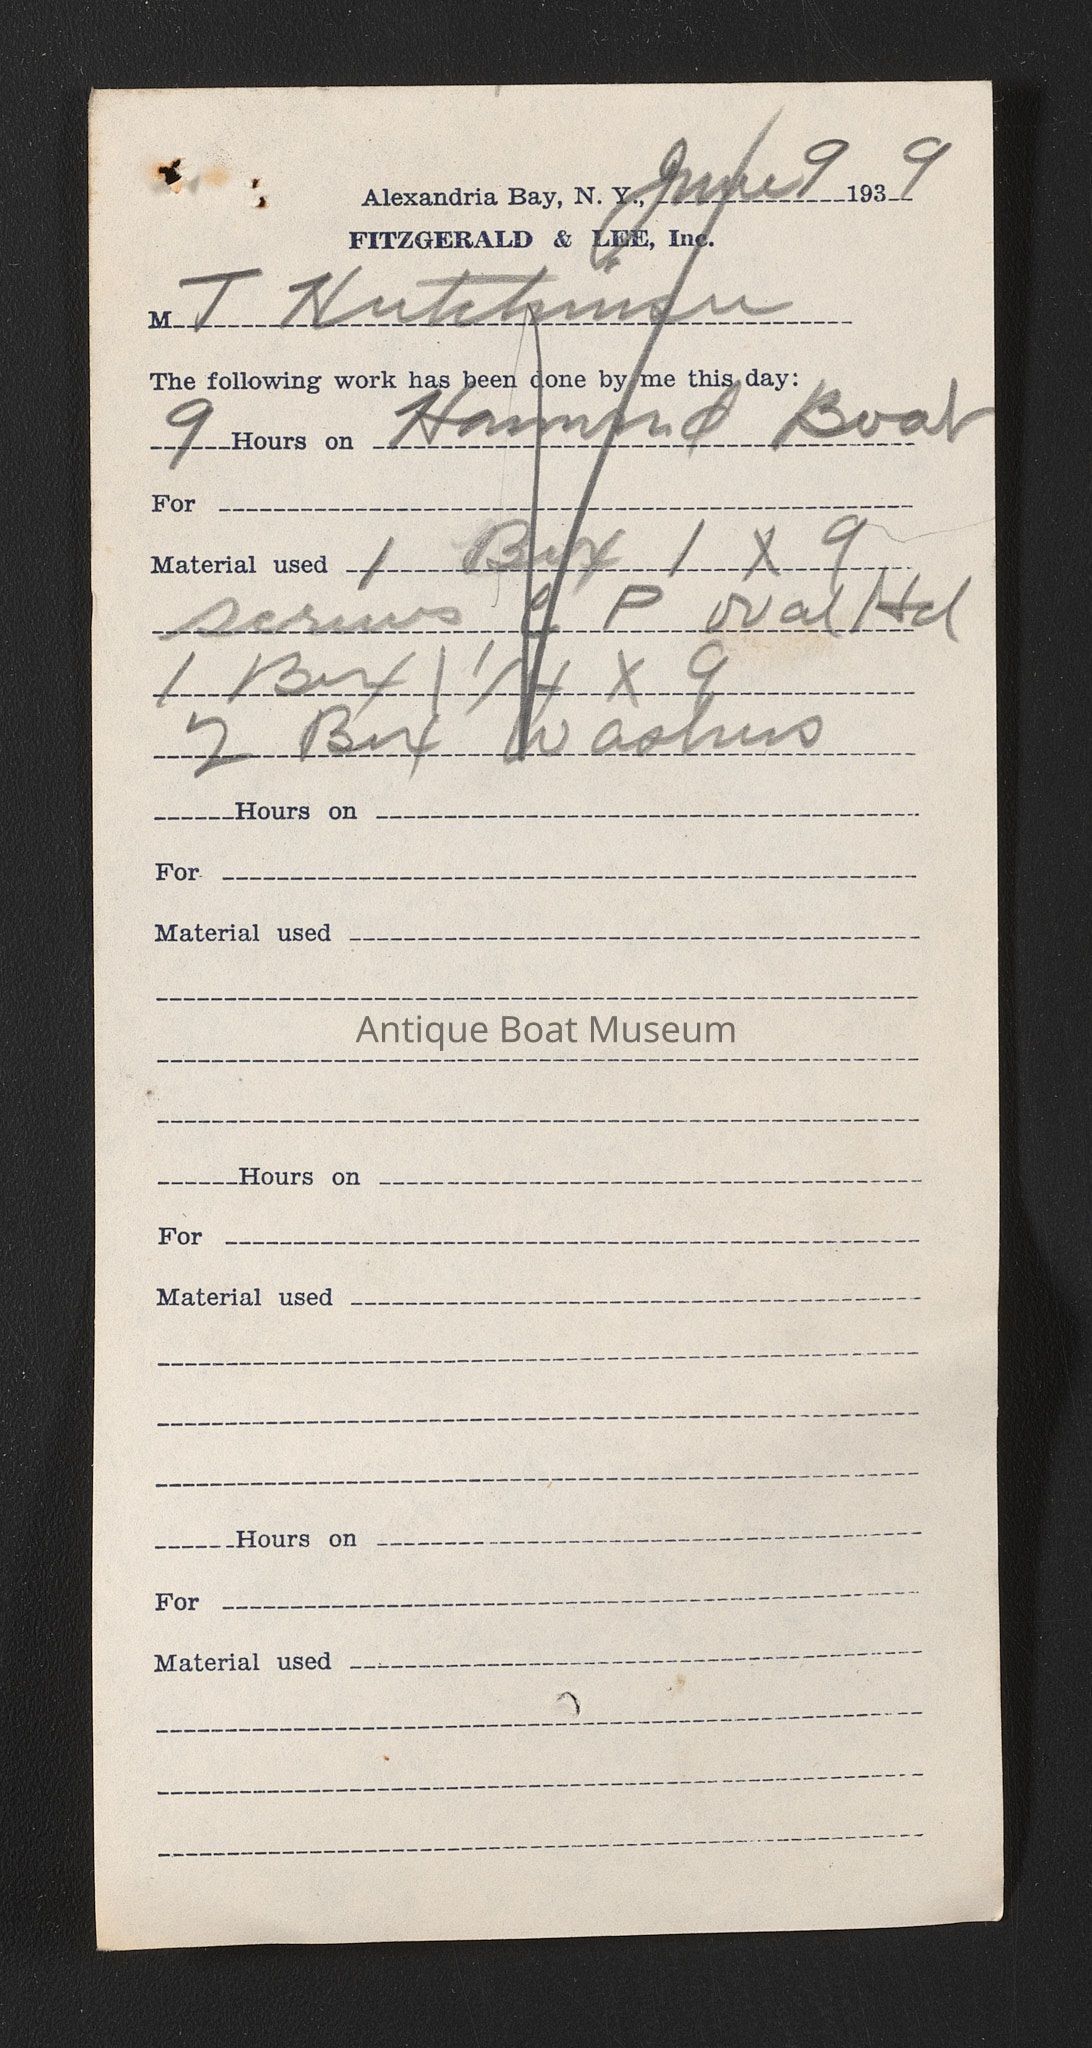 Alexandria Bay, N. Y., June 9 1939
FITZGERALD & LEE, Inc.
M T Hutchinson
The following work has been done by me this day:
9 Hours on Hammond Boat
For
Material used 1 Box 1 x 9
screws C P oval Hd
1 Box 1 1/4 x 9
2 Box Washers
Hours on
For
Material used
Antique Boat Museum
Hours on
For
Material used
Hours on
For
Material used